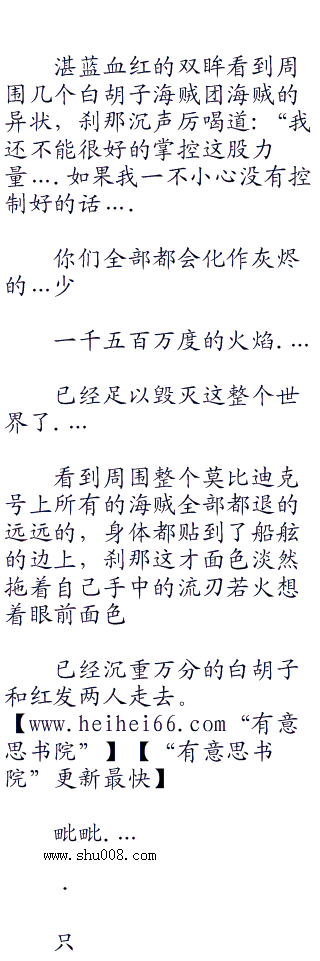 湛蓝血红的双眸看到周
围几个白胡子海贼团海贼的
异状，刹那沉声厉喝道：“我
还不能很好的掌控这股力
量….如果我一不小心没有控
制好的话….
你们全部都会化作灰烬
的…少
一千五百万度的火焰.…
已经足以毁灭这整个世
界了.…
看到周围整个莫比迪克
号上所有的海贼全部都退的
远远的，身体都贴到了船舷
的边上，刹那这才面色淡然
拖着自己手中的流刃若火想
着眼前面色
已经沉重万分的白胡子
和红发两人走去。
【www.heihei66.com“有意
思书院”】【“有意思书
院”更新最快】
毗毗.…
www.shu008.com
.
只